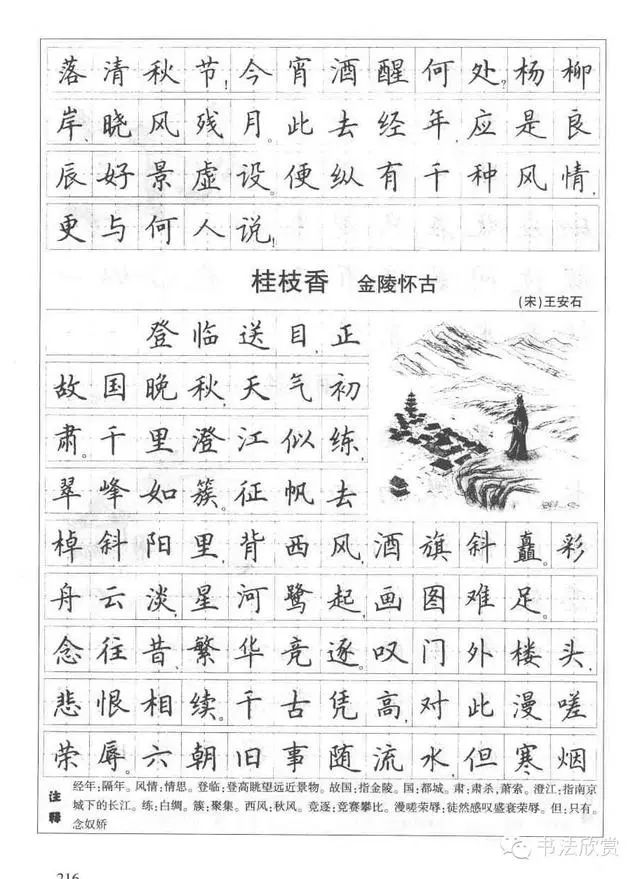 落清秋节！今宵酒醒何处？杨柳
岸、晓风残月。此去经年，应是良
辰好景虚设。便纵有千种风情，
更与何人说！
桂枝香 金陵怀古
(宋)王安石
登临送目，正
故国晚秋，天气初
肃。千里澄江似练，
翠峰如簇。征帆去
棹斜阳里，背西风，酒旗斜矗。彩
舟云淡，星河鹭起，画图难足。
念往昔，繁华竞逐。叹门外楼头，
悲恨相续。千古凭高，对此漫嗟
荣辱。六朝旧事随流水，但寒烟
注释
经年：隔年。风情：情思。登临：登高眺望远近景物。故国：指金陵。国：都城。肃：肃杀，萧索。澄江：指南京
城下的长江。练：白绸。簇：聚集。西风：秋风。竞逐：竞赛攀比。漫嗟荣辱：徒然感叹盛衰荣辱。但：只有。
念奴娇
书法欣赏
216